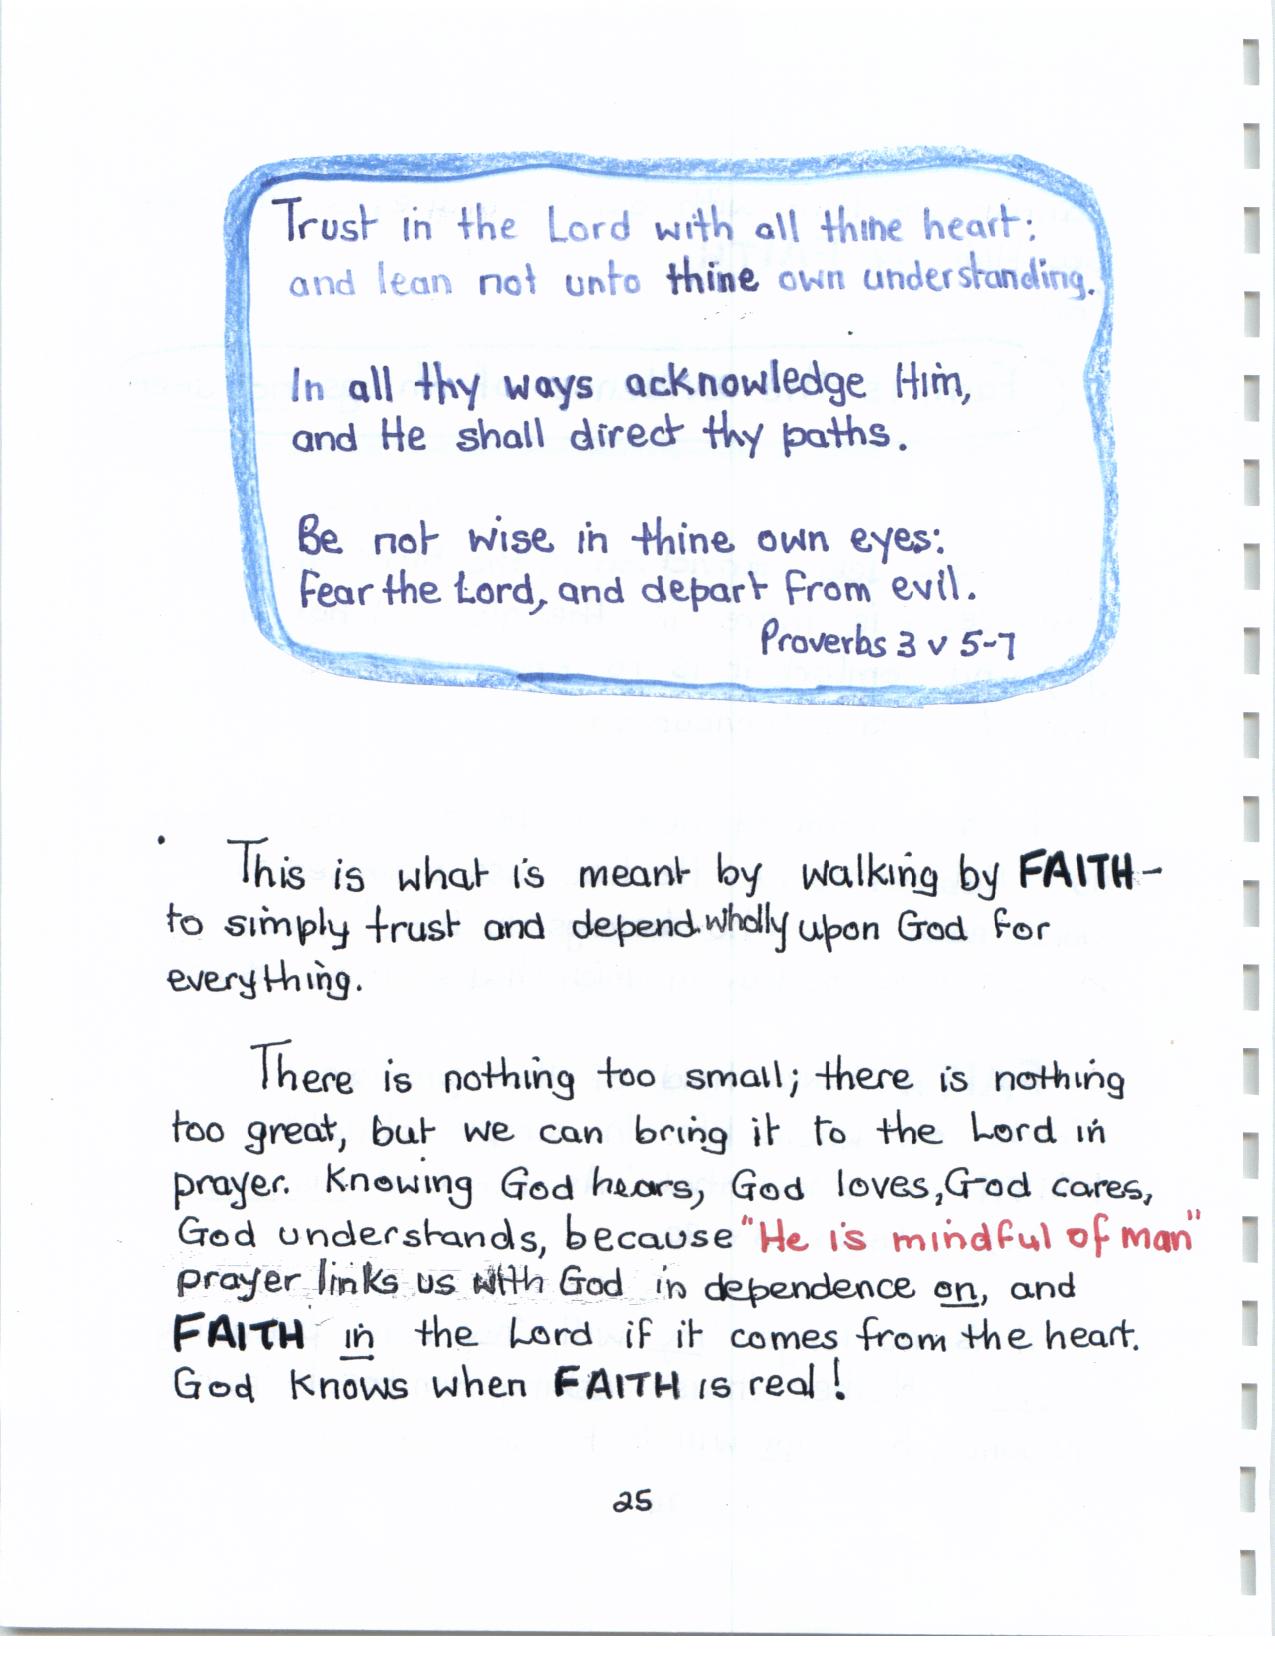 Trust in the Lord with all thine heart:
and lean not unto thine own understanding.
In all thy ways acknowledge Him,
and He shall direct thy paths.
Be not wise in thine own eyes:
Fear the Lord, and depart from evil.
Proverbs 3 v 5-7
This is what is meant by walking by FAITH-
to simply trust and depend wholly upon God for
everything.
There is nothing too small; there is nothing
too great, but we can bring it to the Lord in
prayer. Knowing God hears, God loves, God cares,
God understands, because "He is mindful of man"
prayer links us with God in dependence on, and
FAITH in the Lord if it comes from the heart.
God knows when FAITH is real!
25